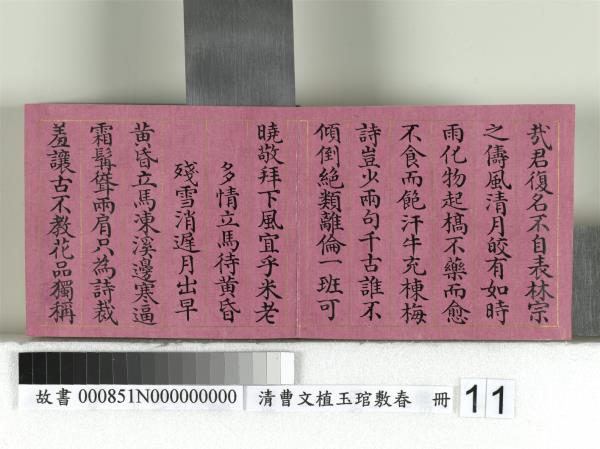 哉君復名不自表林宗
之儔風清月皎有如時
雨化物起槁不藥而愈
不食而飽汗牛充棟梅
詩豈少兩句千古誰不
傾倒絕類離倫一班可
曉敬拜下風宜乎米老
多情立馬待黄昏
殘雪消遲月出早
黄昏立馬凍溪邊寒逼
霜髯聳兩肩只為詩裁
羞讓古不教花品獨稱
故書 000851N000000000
清曹文植玉琯敷春 冊 11